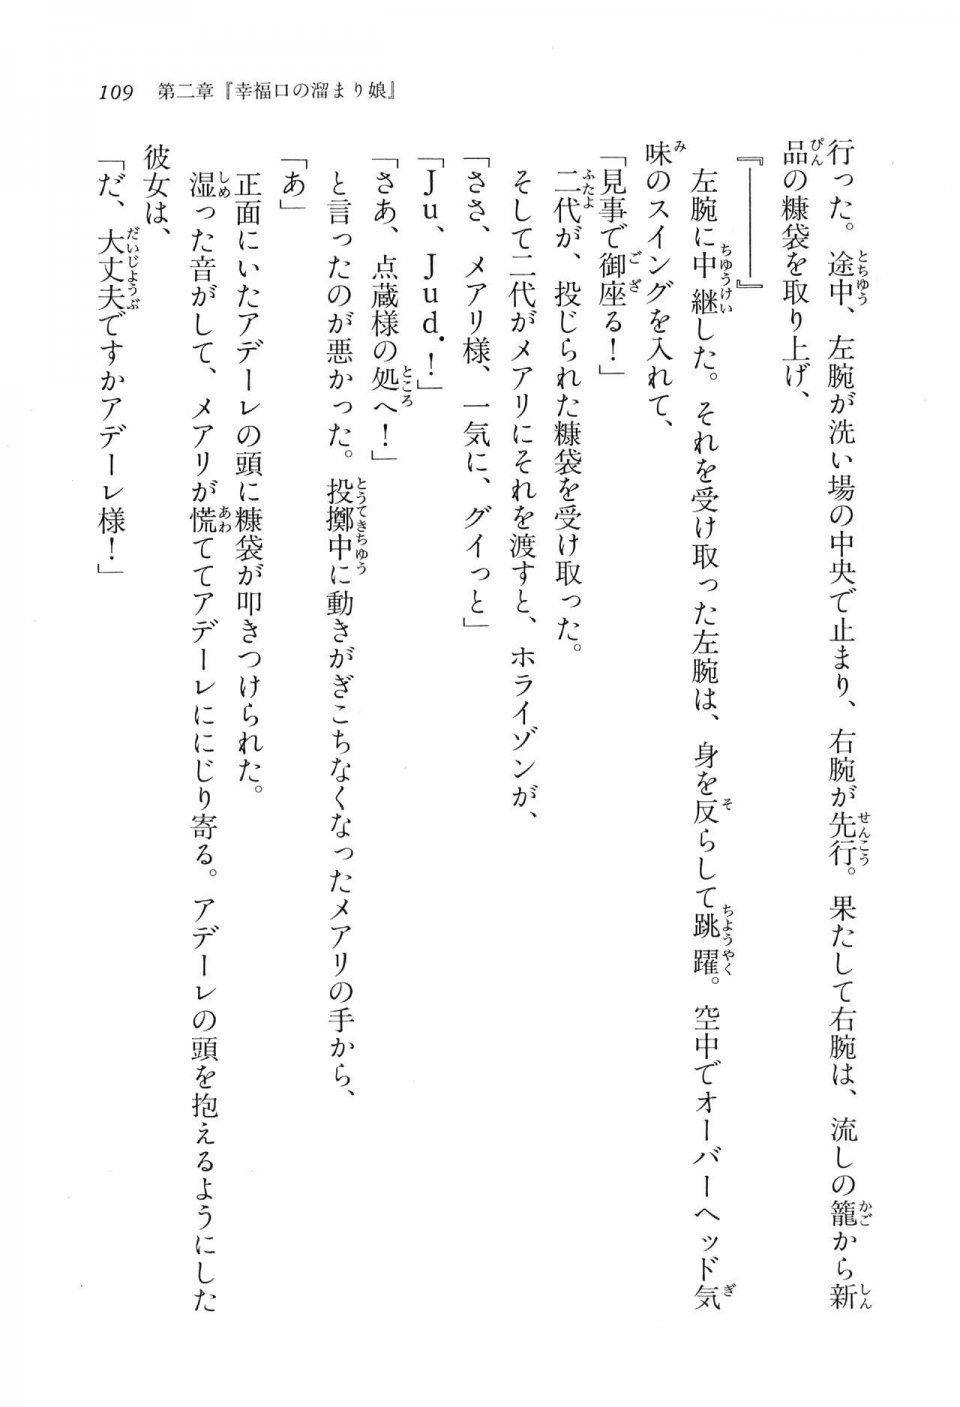 109 第二章『幸福口の溜まり娘』
行った。途中、左腕が洗い場の中央で止まり、右腕が先行。果たして右腕は、流しの籠から新
品の糠袋を取り上げ、
『―――』
左腕に中継した。それを受け取った左腕は、身を反らして跳躍。空中でオーバーヘッド気
味のスイングを入れて、
「見事で御座る！」
二代が、投じられた糠袋を受け取った。
そして二代がメアリにそれを渡すと、ホライゾンが、
「ささ、メアリ様、一気に、グイっと」
「Ｊｕ、Ｊｕｄ．！」
「さあ、点蔵様の処へ！」
と言ったのが悪かった。投擲中に動きがぎこちなくなったメアリの手から、
「あ」
正面にいたアデーレの頭に糠袋が叩きつけられた。
湿った音がして、メアリが慌ててアデーレににじり寄る。アデーレの頭を抱えるようにした
彼女は、
「だ、大丈夫ですかアデーレ様！」